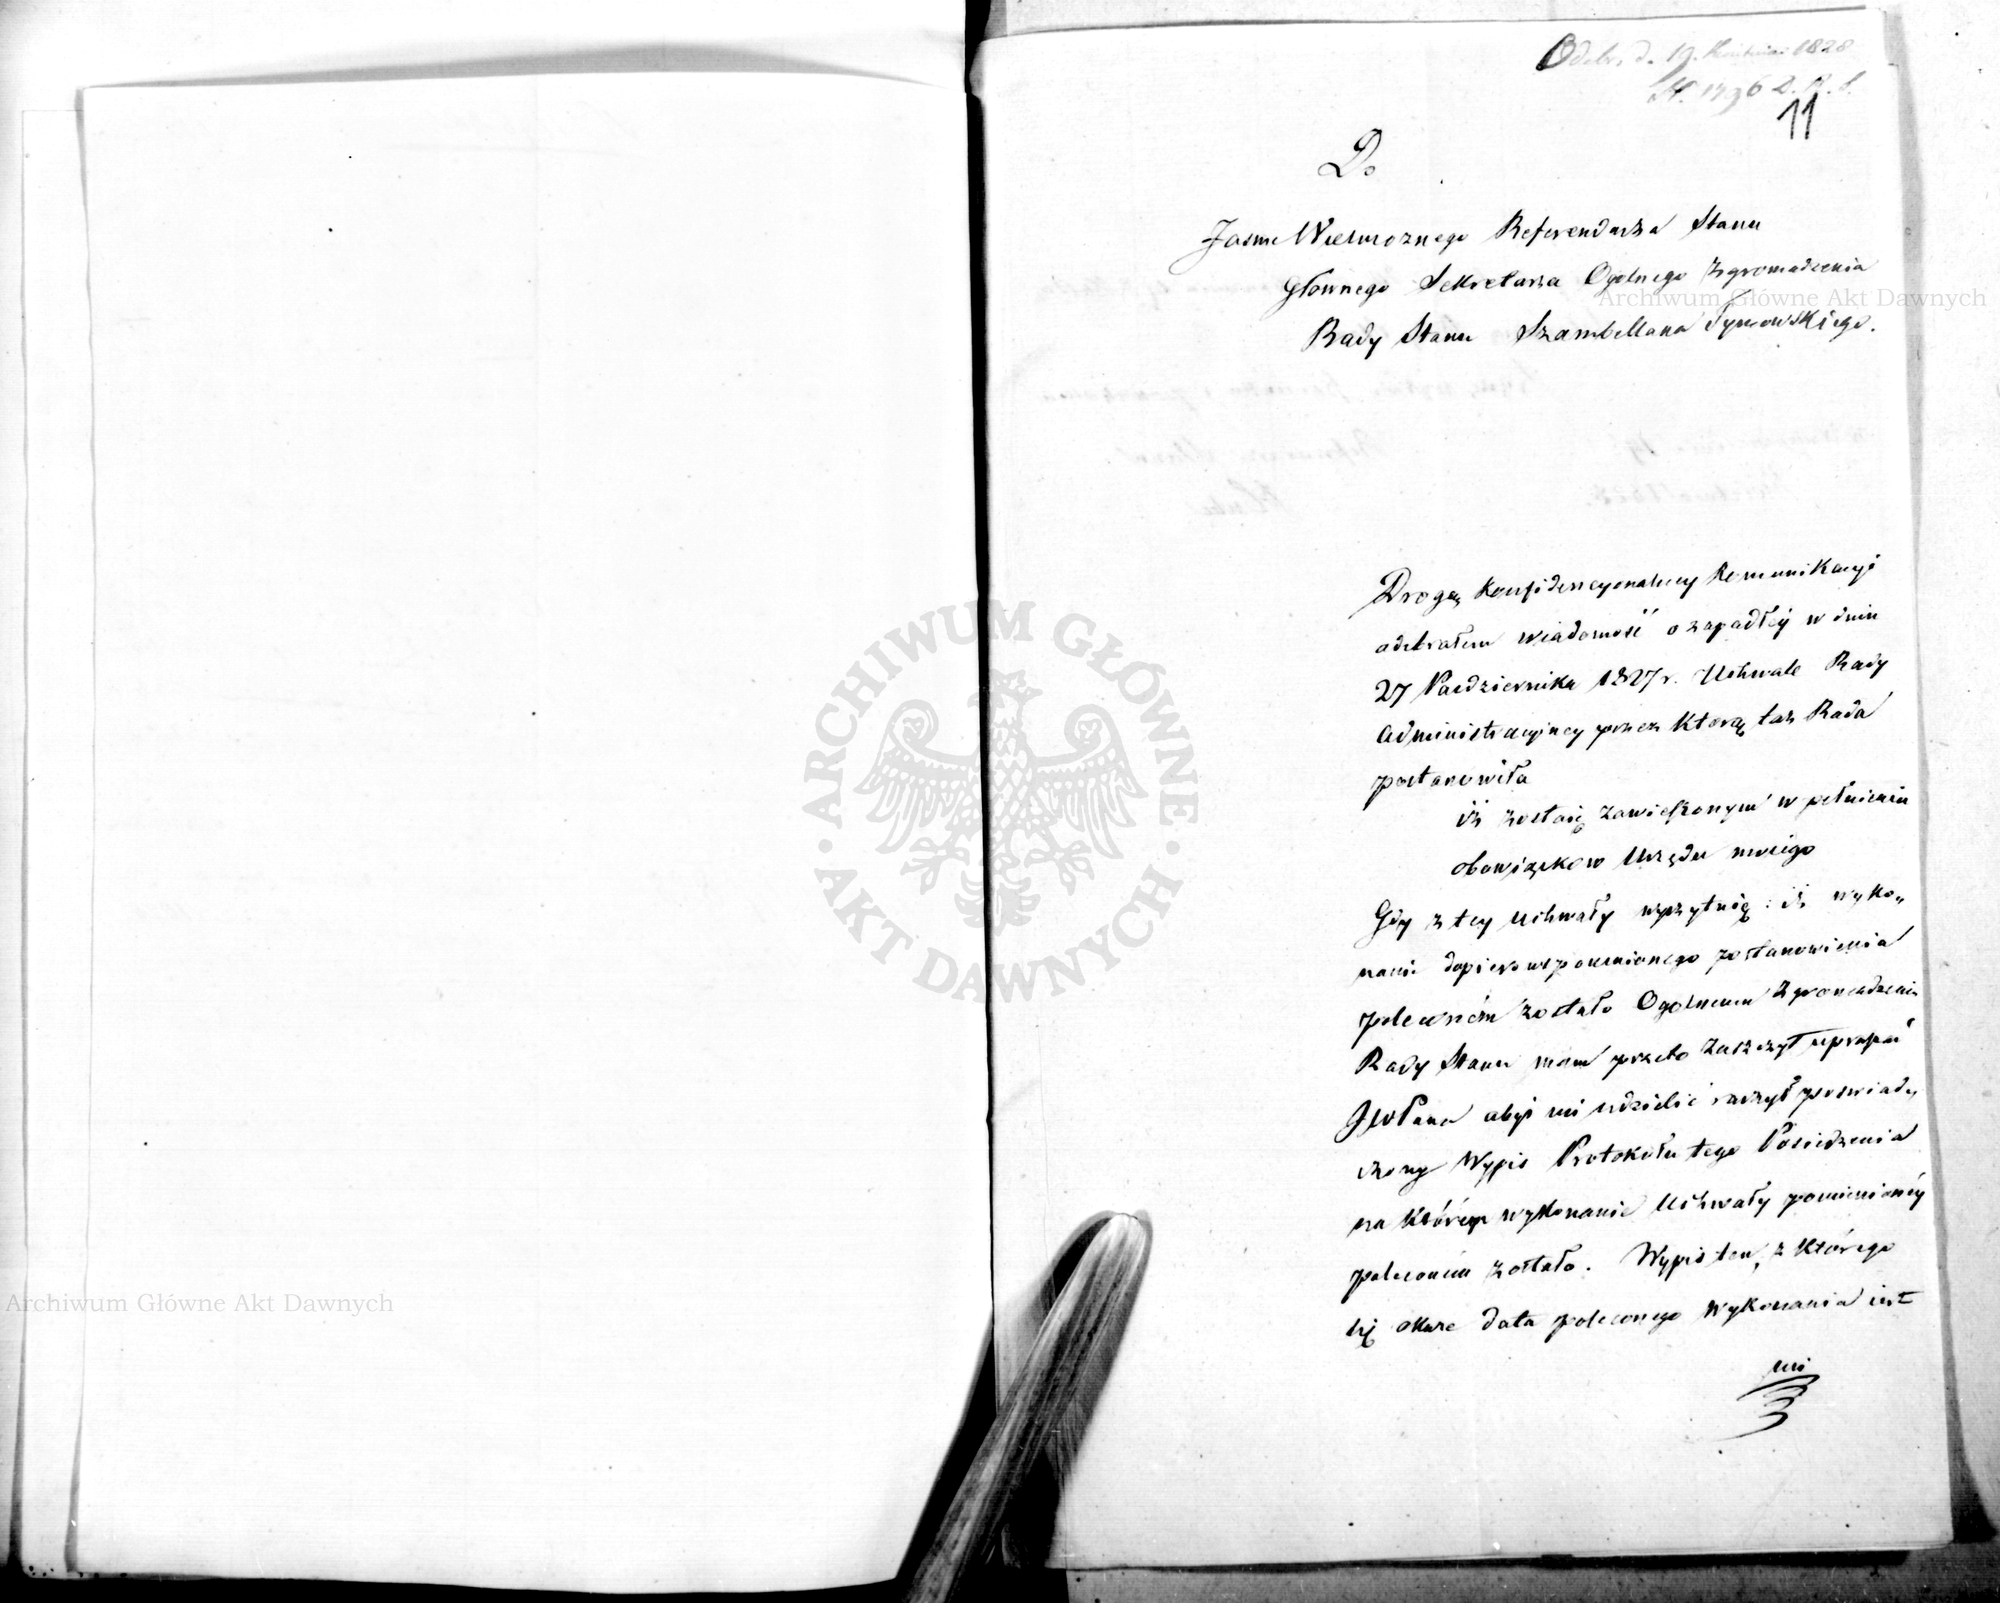 Odebr. d. 19. Kwietnia 1828
N. 1796 D. R. S.
11
Do
Jasnie Wielmoznego Referendarza Stanu
Głownego Sekretarza Ogolnego Zgromadzenia
Rady Stanu Szambellana Tymowskiego.
Drogą Konfidencyonalney Komunikacyi
odebrałem wiadomość o zapadłéy w dniu
27 Pazdziernika 1827 r. Uchwale Rady
Administracyiney przez Ktorą taz Rada
postanowiła
iż zostaię zawieszonym w pełnieniu
obowiązkow Urzędu moiego
Gdy z tey Uchwały wyczytuię: iż wyko„
nanie dopiero wspomnionego postanowienia
poleconém zostało Ogolnemu Zgromadzeniu
Rady Stanu mam przeto zaszczyt upraszać
JWPana abyś mi udzielić raczył poswiad„
czony Wypis Protokołu tego Posiedzenia
na Którém wykonanie Uchwały pomienionéy
poleconém zostało. Wypis ten, z Którego
się okaże data poleconego wykonania iest
mi
ARCHIWUM GŁÓWNE
AKT DAWNYCH
Archiwum Główne Akt Dawnych
Archiwum Główne Akt Dawnych